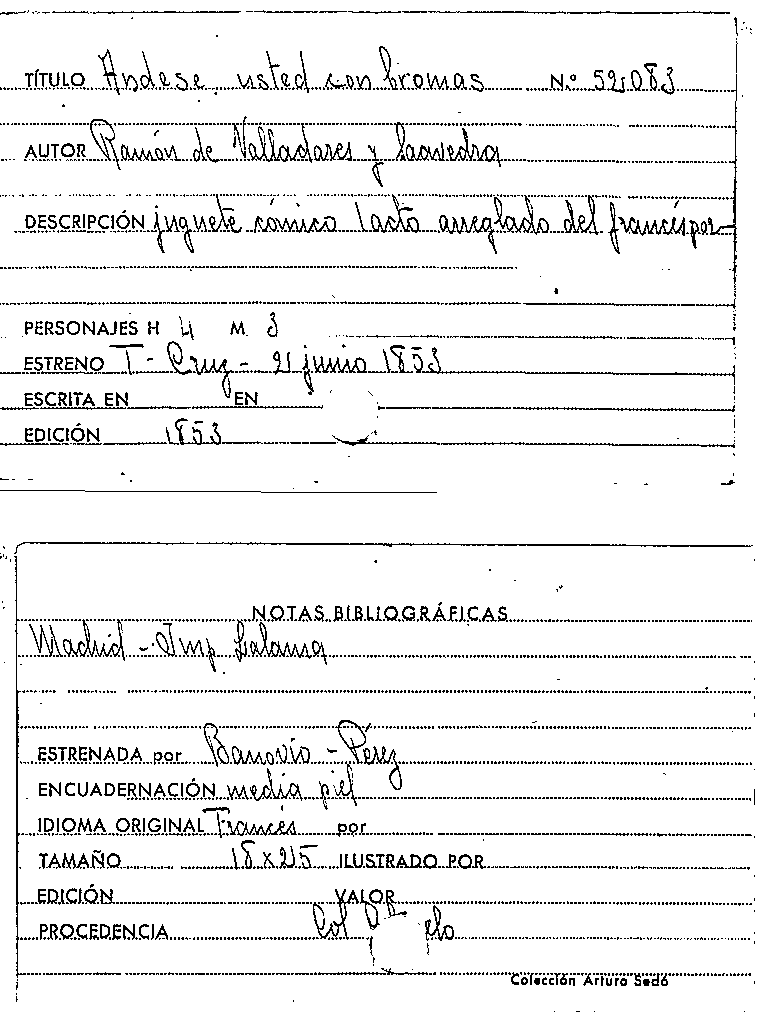 TÍTULO Andese usted con bromas N.º 52,083
AUTOR Ramón de Valladares y Saavedra
DESCRIPCIÓN juguete cómico 1 acto arreglado del francés por
PERSONAJES H 4 M 3
ESTRENO T - Cruz - 21 junio 1853
ESCRITA EN EN
EDICIÓN 1853
NOTAS BIBLIOGRÁFICAS
Madrid - Imp. Lalama
ESTRENADA por Banovio - Pérez
ENCUADERNACIÓN media piel
IDIOMA ORIGINAL Francés por
TAMAÑO 18 x 25 ILUSTRADO POR
EDICIÓN VALOR
PROCEDENCIA Col
Colección Arturo Sedó